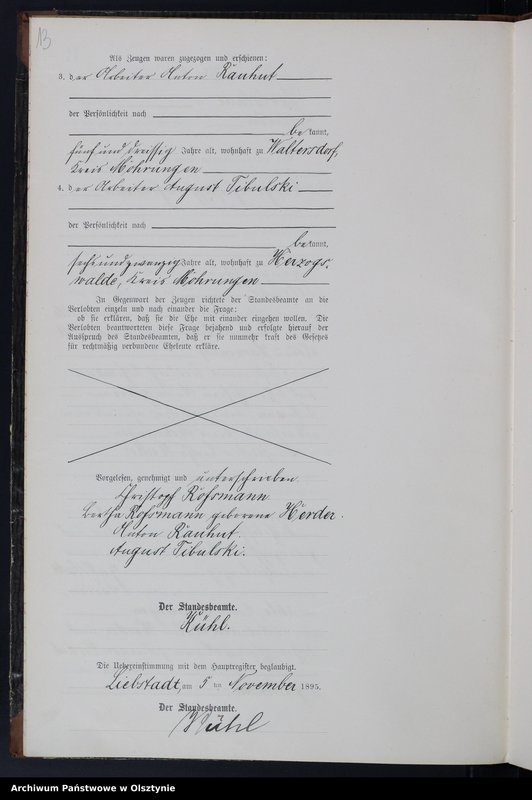 13
Als Zeugen waren zugezogen und erschienen:
3. der Arbeiter Anton Rauhut
der Persönlichkeit nach
bekannt,
fünf und dreissig Jahre alt, wohnhaft zu Waltersdorf,
Kreis Mohrungen
4. der Arbeiter August Tibulski
der Persönlichkeit nach
bekannt,
sechs und zwanzig Jahre alt, wohnhaft zu Herzogs-
walde, Kreis Mohrungen
In Gegenwart der Zeugen richtete der Standesbeamte an die
Verlobten einzeln und nach einander die Frage:
ob sie erklären, daß sie die Ehe mit einander eingehen wollen. Die
Verlobten beantworteten diese Frage bejahend und erfolgte hierauf der
Ausspruch des Standesbeamten, daß er sie nunmehr kraft des Gesetzes
für rechtmäßig verbundene Eheleute erkläre.
Vorgelesen, genehmigt und unterschrieben
Christoph Rohsmann
Bertha Rohsmann geborene Herder.
Anton Rauhut.
August Tibulski.
Der Standesbeamte.
Kühl.
Die Uebereinstimmung mit dem Hauptregister beglaubigt.
Liebstadt, am 5 ten November 1895.
Der Standesbeamte.
Kühl
Archiwum Państwowe w Olsztynie